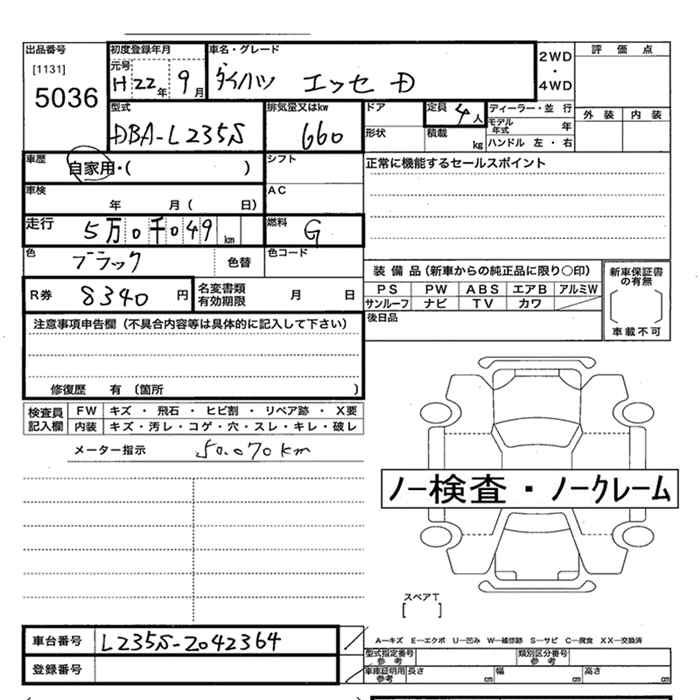 出品番号 初度登録年月 車名・グレード 評価点
[1131] 元号 2WD
5036 H 22年 9月 ダイハツ エッセ D ・
4WD
型式 排気量又はkw ドア 定員 4人 ディーラー・並 行 外装 内装
DBA-L235S 660 形状 積載 kg モデル年式 年
ハンドル 左・右
車歴 自家用・( ) シフト 正常に機能するセールスポイント
車検 年 月( 日) AC
走行 5万0千049km 燃料 G
色 ブラック 色替 色コード
装備品(新車からの純正品に限り○印) 新車保証書の有無
R券 8340円 名変書類有効期限 月 日 PS PW ABS エアB アルミW
サンルーフ ナビ TV カワ
注意事項申告欄(不具合内容等は具体的に記入して下さい) 後日品 車載不可
修復歴 有 (箇所 )
検査員記入欄 FW キズ・飛石・ヒビ割・リペア跡・X要
内装 キズ・汚レ・コゲ・穴・スレ・キレ・破レ
メーター指示 50.070km
ノー検査・ノークレーム
スペアT
[ ]
車台番号 L235S-2042364 A―キズ E―エクボ U―凹み W―補修跡 S―サビ C―腐食 XX―交換済
型式指定番号参考 類別区分番号参考
登録番号 車庫証明用参考 長さ cm 幅 cm 高さ cm